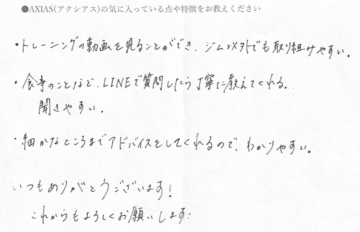 ●AXIAS(アクシアス)の気に入っている点や特徴をお教えください
・トレーニングの動画を見ることができ、ジム以外でも取り組みやすい。
・食事のことなど、LINEで質問したら丁寧に教えてくれる。
聞きやすい。
・細かなところまでアドバイスをしてくれるので、わかりやすい。
いつもありがとうございます!
これからもよろしくお願いします!